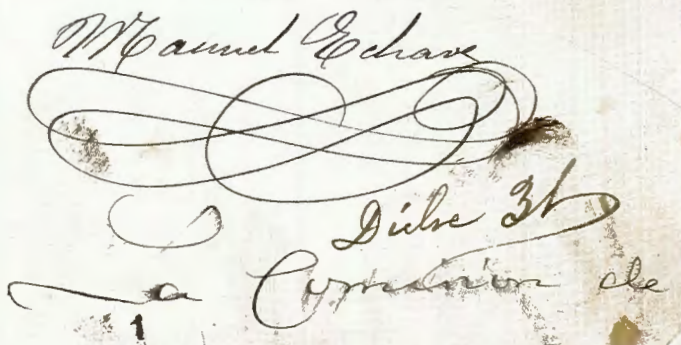 Manuel Echave
Dicbre 31
La Comision de
1